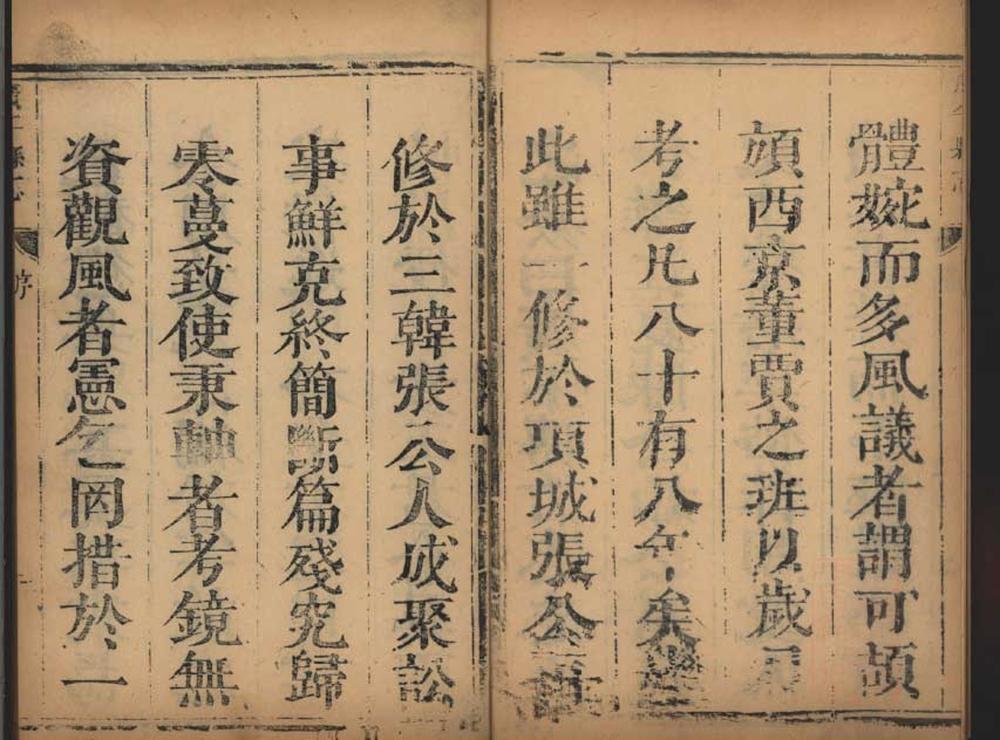 體婉而多風議者謂可頡
頏西京董賈之班以歲
考之凡八十有八年矣
此雖一修於項城張公再
修於三韓張公人成聚訟
事鮮克終簡斷篇殘究歸
零蔓致使秉軸者考鏡無
資觀風者憲乞罔措於一
序